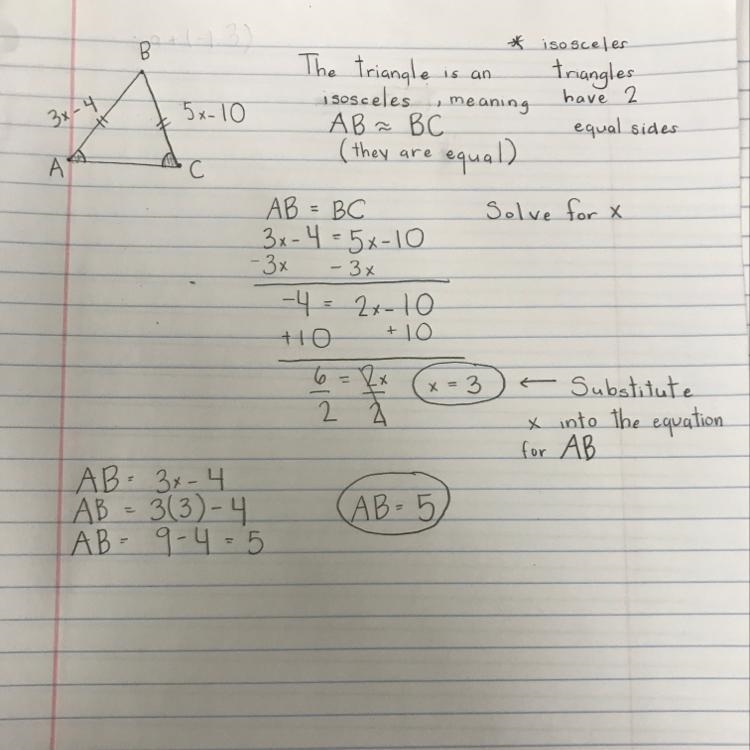 B
3x-4
5x-10
A
C
* isosceles
triangles
have 2
equal sides
The triangle is an
isosceles, meaning
AB ≈ BC
(they are equal)
AB = BC
Solve for x
3x-4 = 5x-10
-3x -3x
-4 = 2x-10
+10 +10
6 = 2x
2 2
x = 3
← Substitute
x into the equation
for AB
AB = 3x-4
AB = 3(3)-4
AB = 9-4 = 5
AB = 5